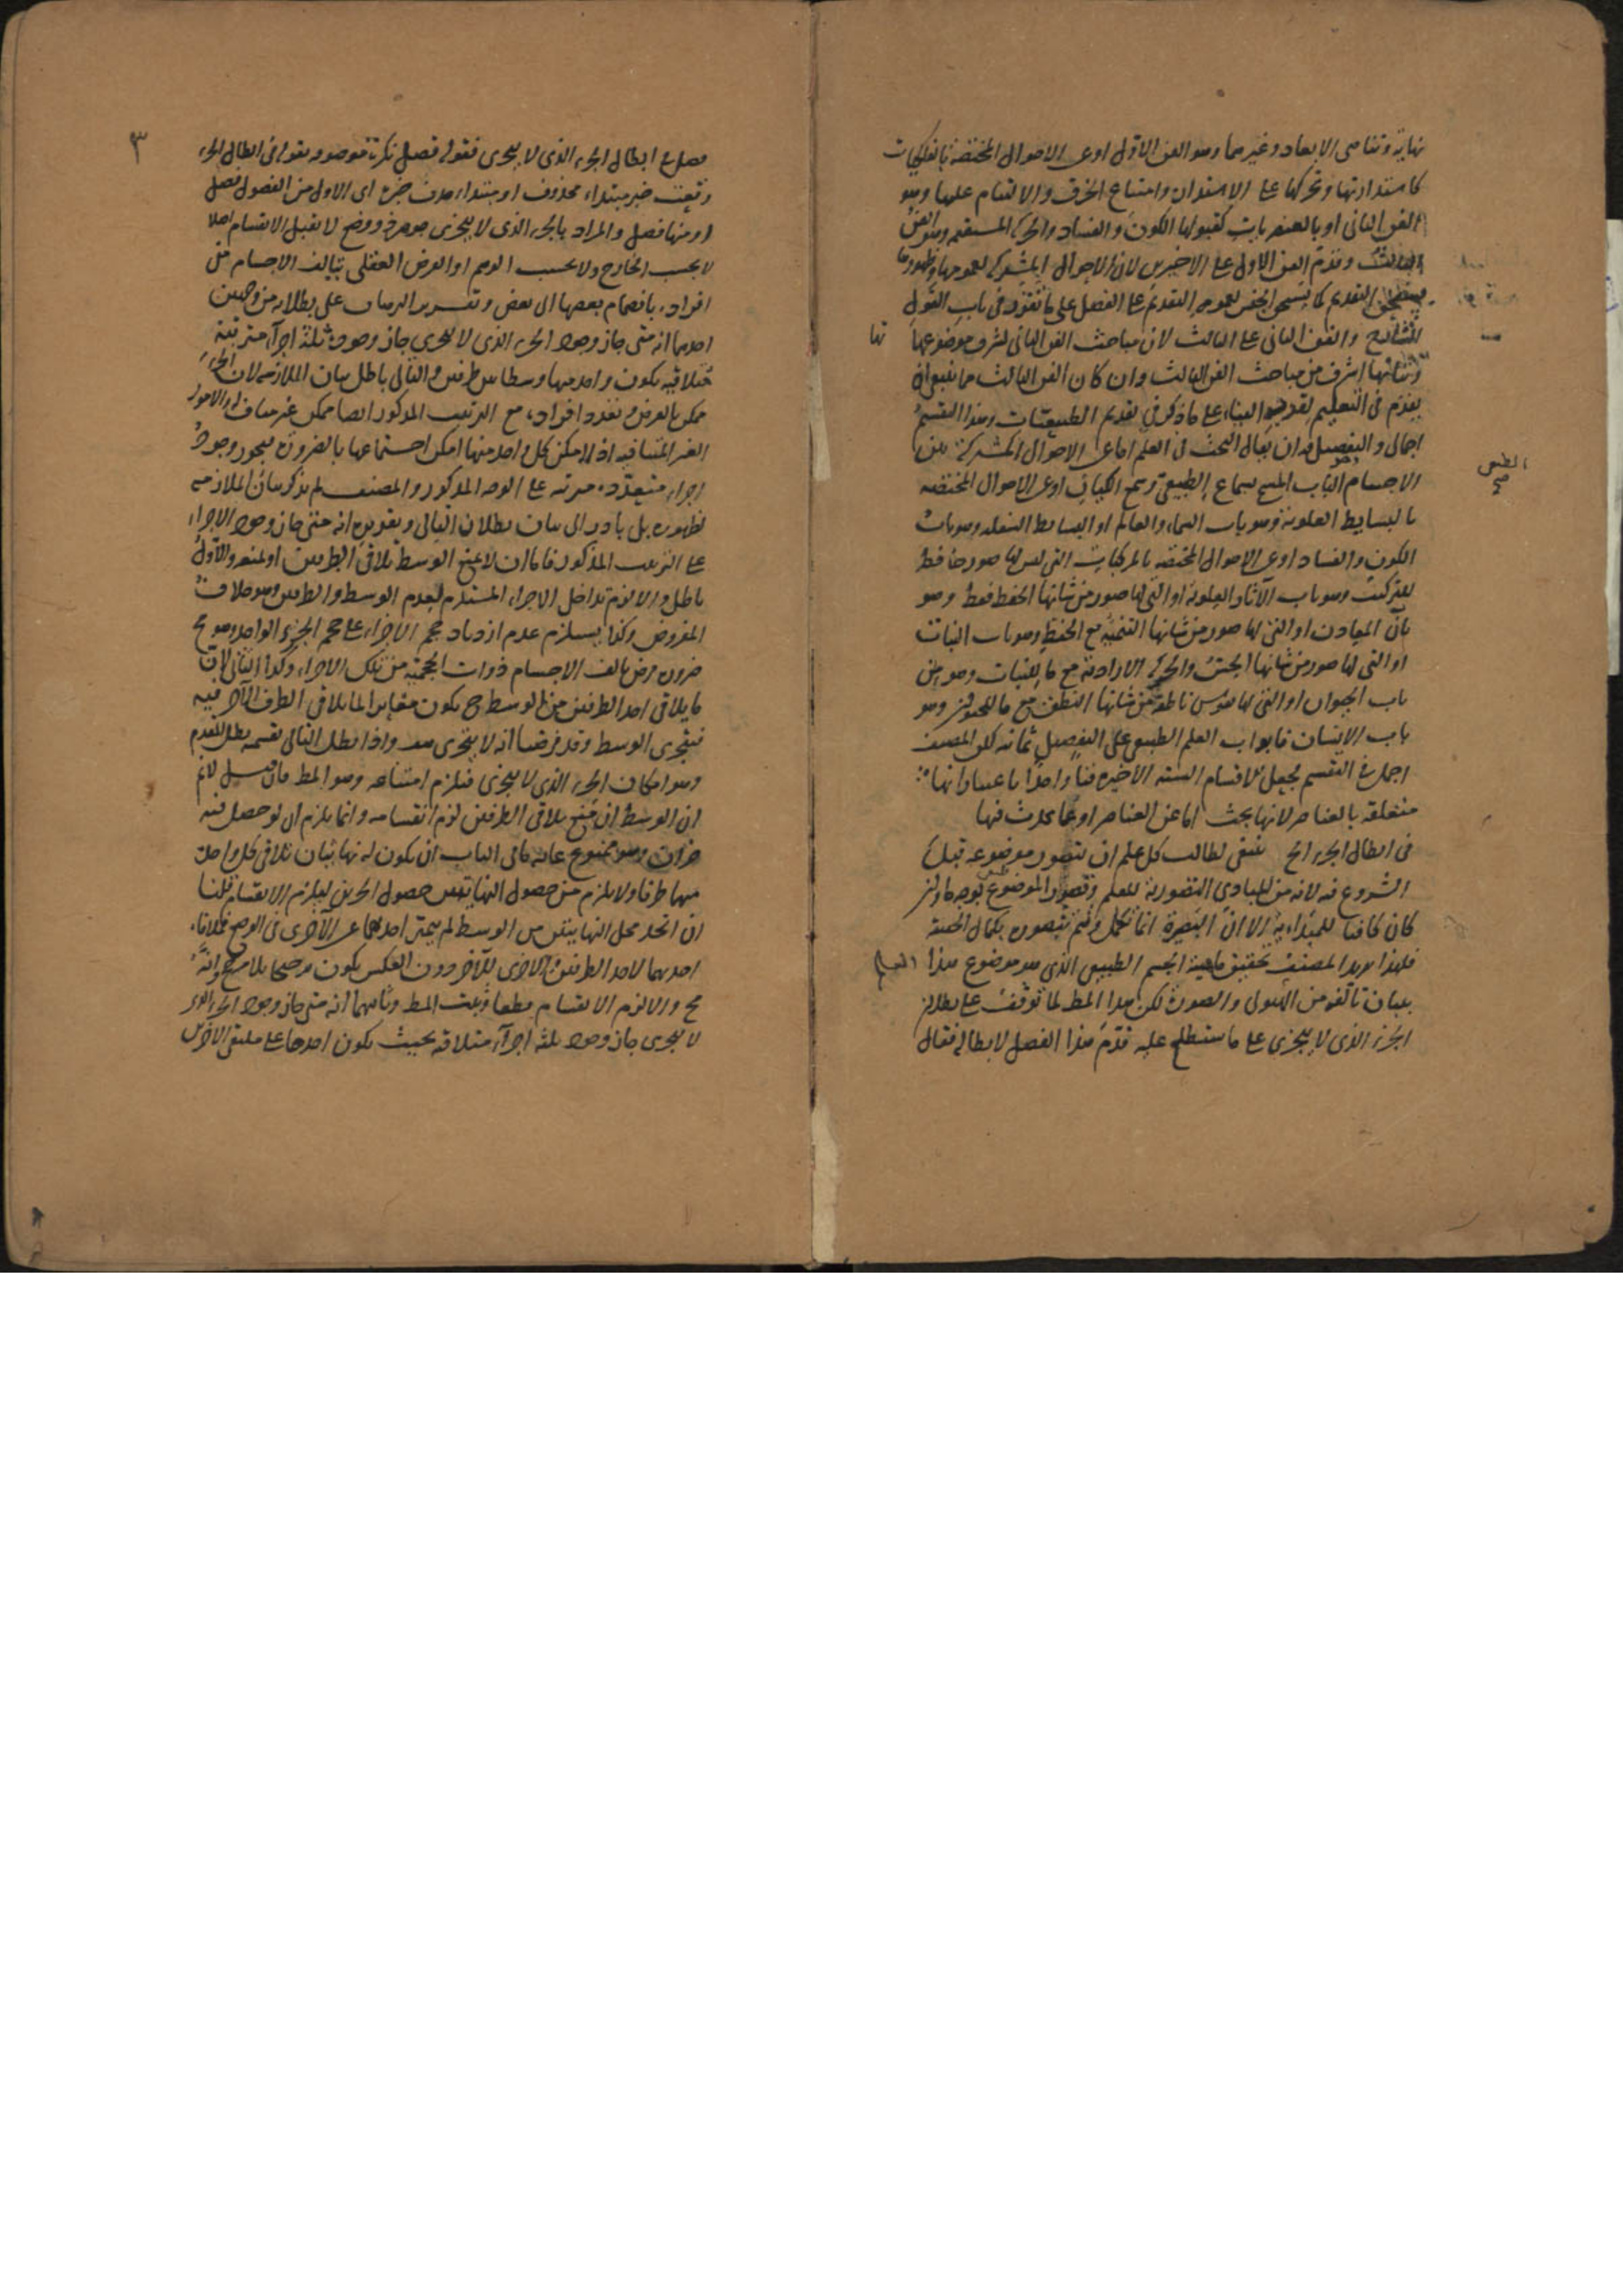 نهاية وتناهى الابعاد وغيرهما وهو الفن الاول او عن الاحوال المختصة بالفلكيات
كاستدارتها وتحركها على الاستدارة وامتناع الخرق والالتيام عليها وهو
الفن الثانى او بالعنصريات كقبولها الكون والفساد والحركة المستقيمة وهو الفن
الثالث وقدم الفن الاول على الاخيرين لان الاحوال المشتركة لعمومها وظهورها
يستحق التقديم كما يستحق الجنس لعمومه التقديم على الفصل على ما تقرر فى باب القول
الشارح والفن الثانى على الثالث لان مباحث الفن الثانى لشرف موضوعها
وثباتها اشرف من مباحث الفن الثالث وان كان الفن الثالث مما ينبغى ان
يقدم فى التعليم لقربه الينا على ما ذكر فى تقديم الطبيعيات وهذا التقسيم
اجمالى والتفصيل ان يقال البحث فى العلم اما عن الاحوال المشتركة بين
الطبيعى
صح
الاجسام وهو الباب المسمى بسماع الطبيعى وسمع الكيان او عن الاحوال المختصة
بالبسايط العلوية وهو باب السماء والعالم او البسايط السفلية وهو باب
الكون والفساد او عن الاحوال المختصة بالمركبات التى ليس لها صور حافظة
للتركيب وهو باب الآثار العلوية او التى لها صور من شانها الحفظ فقط وهو
باب المعادن او التى لها صور من شانها التنمية مع الحفظ وهو باب النبات
او التى لها صور من شانها الحس والحركة الارادية مع ما للنبات وهو
باب الحيوان او التى لها نفوس ناطقة من شانها النطق مع ما للحيوان وهو
باب الانسان فابواب العلم الطبيعى على التفصيل ثمانية لكن المصنف
اجمل فى التقسيم فجعل الاقسام الستة الاخيرة فنا واحدا باعتبار انها
متعلقة بالعناصر لانها بحث اما عن العناصر او عما يحدث فيها
فى ابطال الجزء الخ ينبغى لطالب كل علم ان يتصور موضوعه قبل
الشروع فيه لانه من المبادى التصورية للعلم وتصور الموضوع بوجه ما وان
كان كافيا للمبتدا به الا ان البصيرة انما تكمل وتتم بتصوره بكمال الحقيقة
فلهذا اراد المصنف تحقيق ماهية الجسم الطبيعى الذى هو موضوع هذا العلم
ببيان تألفه من الهيولى والصورة لكن هذا المط لما توقف على بطلان
الجزء الذى لا يتجزى على ما ستطلع عليه قدم هذا الفصل لابطاله فقال
٣
فصل فى ابطال الجزء الذى لا يتجزى فنقول فصل نكرة موصوف بقوله فى ابطال الجزء
وقعت خبر مبتداء محذوف او مبتداء حذف خبره اى الاول من الفصول فصل
او منها فصل والمراد بالجزء الذى لا يتجزى جوهر ذو وضع لا يقبل الانقسام اصلا
لا بحسب الخارج ولا بحسب الوهم او الفرض العقلى يتألف الاجسام من
افراده بانضمام بعضها الى بعض وتقرير البرهان على بطلانه من وجهين
احدهما انه متى جاز وجود الجزء الذى لا يتجزى جاز وجود ثلثة اجزاء مترتبة
متلاقية يكون واحد منها وسطا بين طرفين والتالى باطل بيان الملازمة لان الجزء
ممكن بالفرض وتعدد افراده مع الترتيب المذكور ايضا ممكن غير مناف والامور
الغير المتنافية اذا امكن كل واحد منها امكن اجتماعها بالضرورة فيجوز وجود
اجزاء متعددة مرتبة على الوجه المذكور والمصنف لم يذكر بيان الملازمة
لظهوره بل بادر الى بيان بطلان التالى وتقريره انه متى جاز وجود الاجزاء
على الترتيب المذكور فاما ان لا يمنع الوسط تلاقى الطرفين او يمنع والاول
باطل والا لزم تداخل الاجزاء المستلزم لعدم الوسط والطرفين وهو خلاف
المفروض وكذا يستلزم عدم ازدياد حجم الاجزاء على حجم الجزء الواحد وهو مح
ضرورة فرض تالف الاجسام ذوات الحجمية من تلك الاجزاء وكذا الثانى لان
ما يلاقى احد الطرفين من الوسط ح يكون مغايرا لما يلاقى الطرف الآخر منه
فيتجزى الوسط وقد فرضنا انه لا يتجزى هف واذا بطل التالى بقسميه بطل المقدم
وهو امكان الجزء الذى لا يتجزى فيلزم امتناعه وهو المط فان قيل لانم
ان الوسط ان منع تلاقى الطرفين لزم انقسامه وانما يلزم ان لو حصل فيه
جزءان وهو ممنوع غاية ما فى الباب ان يكون له نهايتان تلاقى كل واحدة
منهما طرفا ولا يلزم من حصول النهايتين حصول الجزئين ليلزم الانقسام قلنا
ان اتحد محل النهايتين من الوسط لم يتميز احدهما عن الاخرى فى الوضع فملاقاة
احدهما لاحد الطرفين والاخرى للآخر دون العكس يكون ترجيحا بلا مرجح وانه
مح والا لزم الانقسام قطعا وثبت المط وثانيهما انه متى جاز وجود الجزء الذى
لا يتجزى جاز وجود ثلثة اجزاء متلاقية بحيث يكون احدها على ملتقى الآخرين